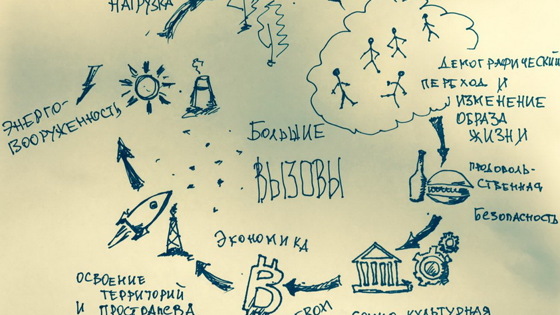 НАГРУЗКА
ДЕМОГРАФИЧЕСКИЙ
ПЕРЕХОД И
ИЗМЕНЕНИЕ
ОБРАЗА
ЖИЗНИ
ЭНЕРГО-
ВООРУЖЕННОСТЬ
БОЛЬШИЕ
ВЫЗОВЫ
ПРОДОВОЛЬ-
СТВЕННАЯ
БЕЗОПАСНОСТЬ
ЭКОНОМИКА
ОСВОЕНИЕ
ТЕРРИТОРИЙ
И ПРОСТРАНСТВА
КУЛЬТУРНАЯ